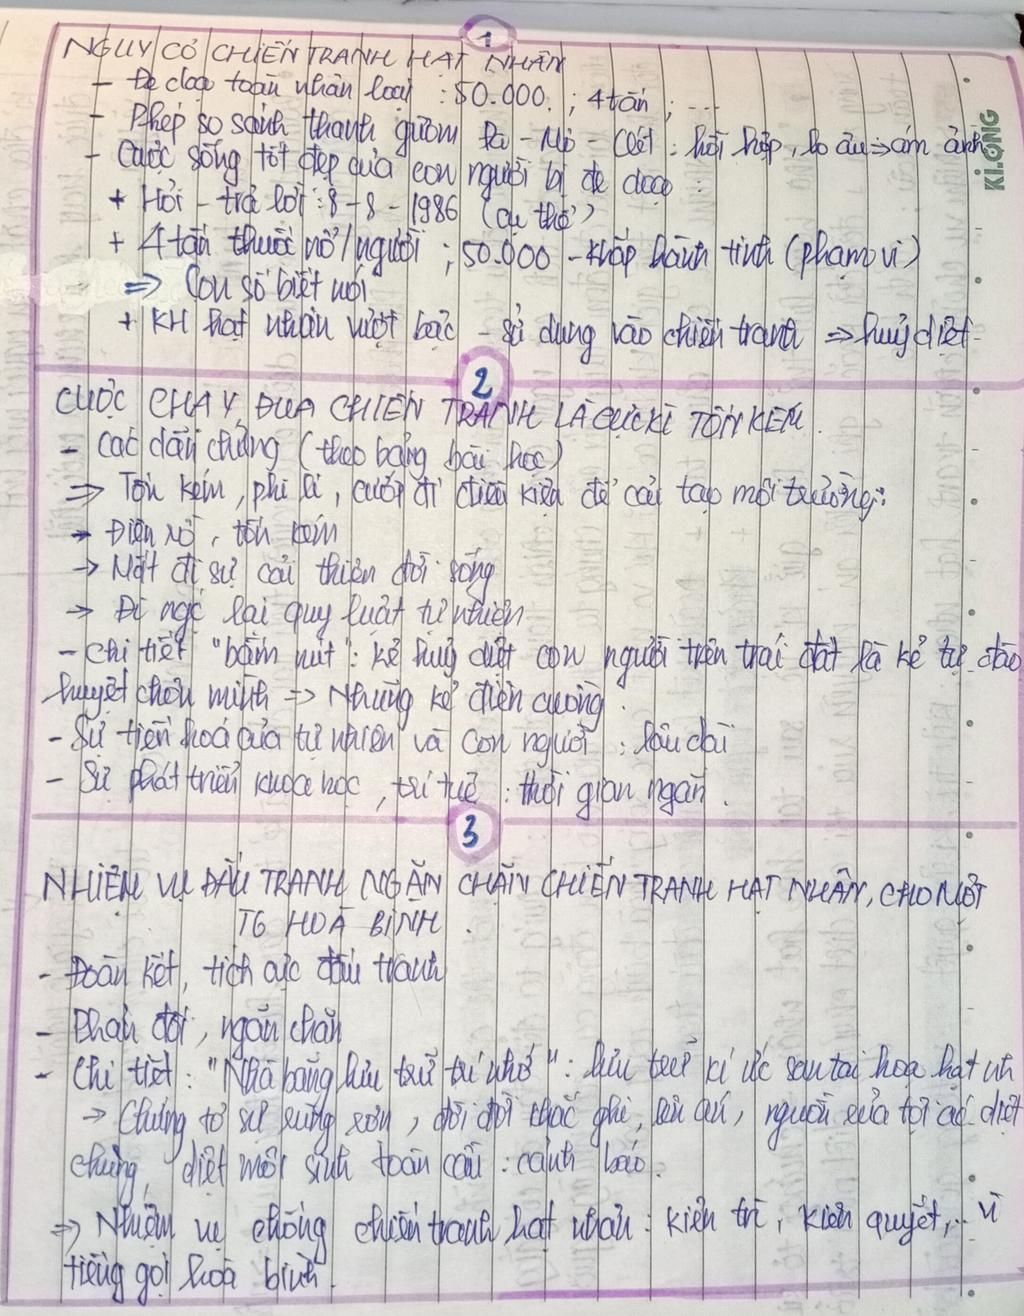 1
NGUY CƠ CHIẾN TRANH HẠT NHÂN
- Đe doạ toàn nhân loại : 50.000 ; 4 tấn ; ...
- Phép so sánh thanh gươm Đa - Mô - Clét : hồi hộp, lo âu => ám ảnh
KLONG
- Cuộc sống tốt đẹp của con người bị đe doạ :
+ Hỏi - trả lời : 8 - 8 - 1986 (cụ thể)
+ 4 tấn thuốc nổ/người ; 50.000 - khắp hành tinh (phạm vi)
=> Con số biết nói
+ KH hạt nhân vượt bậc - sử dụng vào chiến tranh => huỷ diệt
2
CUỘC CHẠY ĐUA CHIẾN TRANH LÀ CỰC KÌ TỐN KÉM.
- Các dẫn chứng (theo bảng bài học)
=> Tốn kém, phi lí, cướp đi điều kiện để cải tạo môi trường:
-> Điên rồ, tốn kém
-> Mất đi sự cải thiện đời sống
-> Đi ngc lại quy luật tự nhiên
- Chi tiết "bấm nút": kẻ huỷ diệt con người trên trái đất là kẻ tự đào
huyệt chôn mình => Những kẻ điên cuồng.
- Sự tiến hoá của tự nhiên và con người : lâu dài
- Sự phát triển khoa học, trí tuệ : thời gian ngắn.
3
NHIỆM VỤ ĐẤU TRANH NGĂN CHẶN CHIẾN TRANH HẠT NHÂN, CHO MỘT
TG HOÀ BÌNH.
- Đoàn kết, tích cực đấu tranh
- Phản đối, ngăn chặn
- Chi tiết : "Nhà băng lưu trữ trí nhớ" : lưu trữ kí ức sau tai hoạ hạt nh
-> Chứng tỏ sự sống còn, đời đời khắc ghi, lên án, nguồn của tội ác diệt
chủng, diệt môi sinh toàn cầu : cảnh báo.
=> Nhiệm vụ chống chiến tranh hạt nhân : kiên trì, kiên quyết,... vì
tiếng gọi hoà bình.